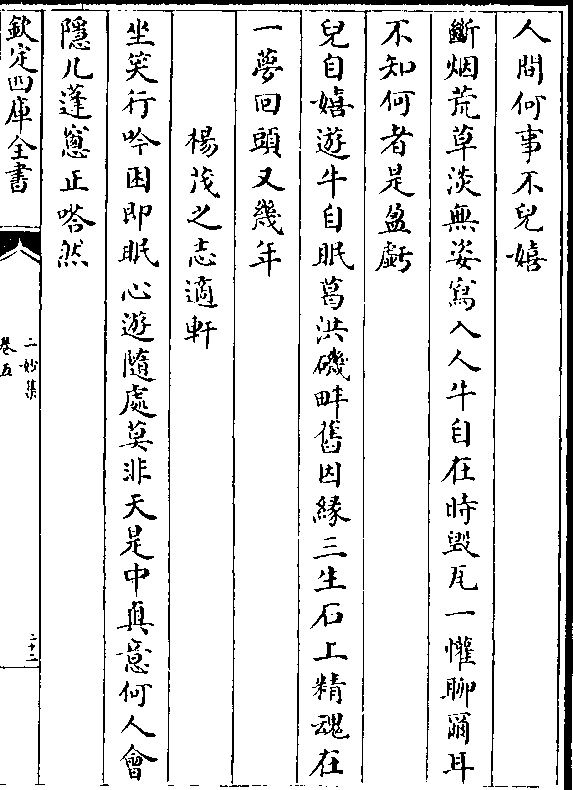 人間何事不兒嬉
斷烟荒草淡無姿寫入人牛自在時毁瓦一懽聊爾耳
不知何者是盈虧
兒自嬉遊牛自眠葛洪磯畔舊因緣三生石上精魂在
一夢回頭又幾年
楊茂之志適軒
坐笑行吟困即眠心遊隨處莫非天是中真意何人會
隱几蓬窻正嗒然
欽定四庫全書
二妙集
卷五
二十二